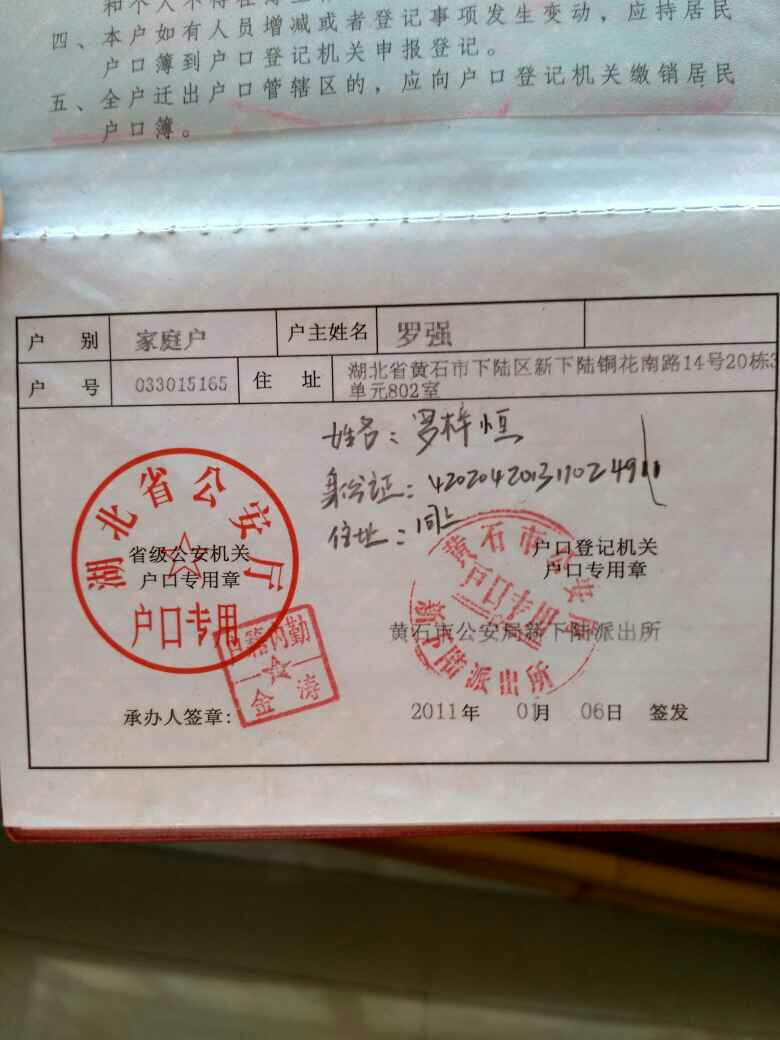 和个人不得在
四、本户如有人员增减或者登记事项发生变动，应持居民
户口簿到户口登记机关申报登记。
五、全户迁出户口管辖区的，应向户口登记机关缴销居民
户口簿。
户 别 家庭户 户主姓名 罗强
户 号 033015165 住 址 湖北省黄石市下陆区新下陆铜花南路14号20栋3
单元802室
姓名：罗梓恒
身份证：
住址：同上
湖北省公安厅
省级公安机关
户口专用章
户口专用
户口登记机关
户口专用章
黄石市公安局
户口专用
新下陆派出所
黄石市公安局新下陆派出所
户籍内勤
金涛
承办人签章：
2011年 01月 06日 签发